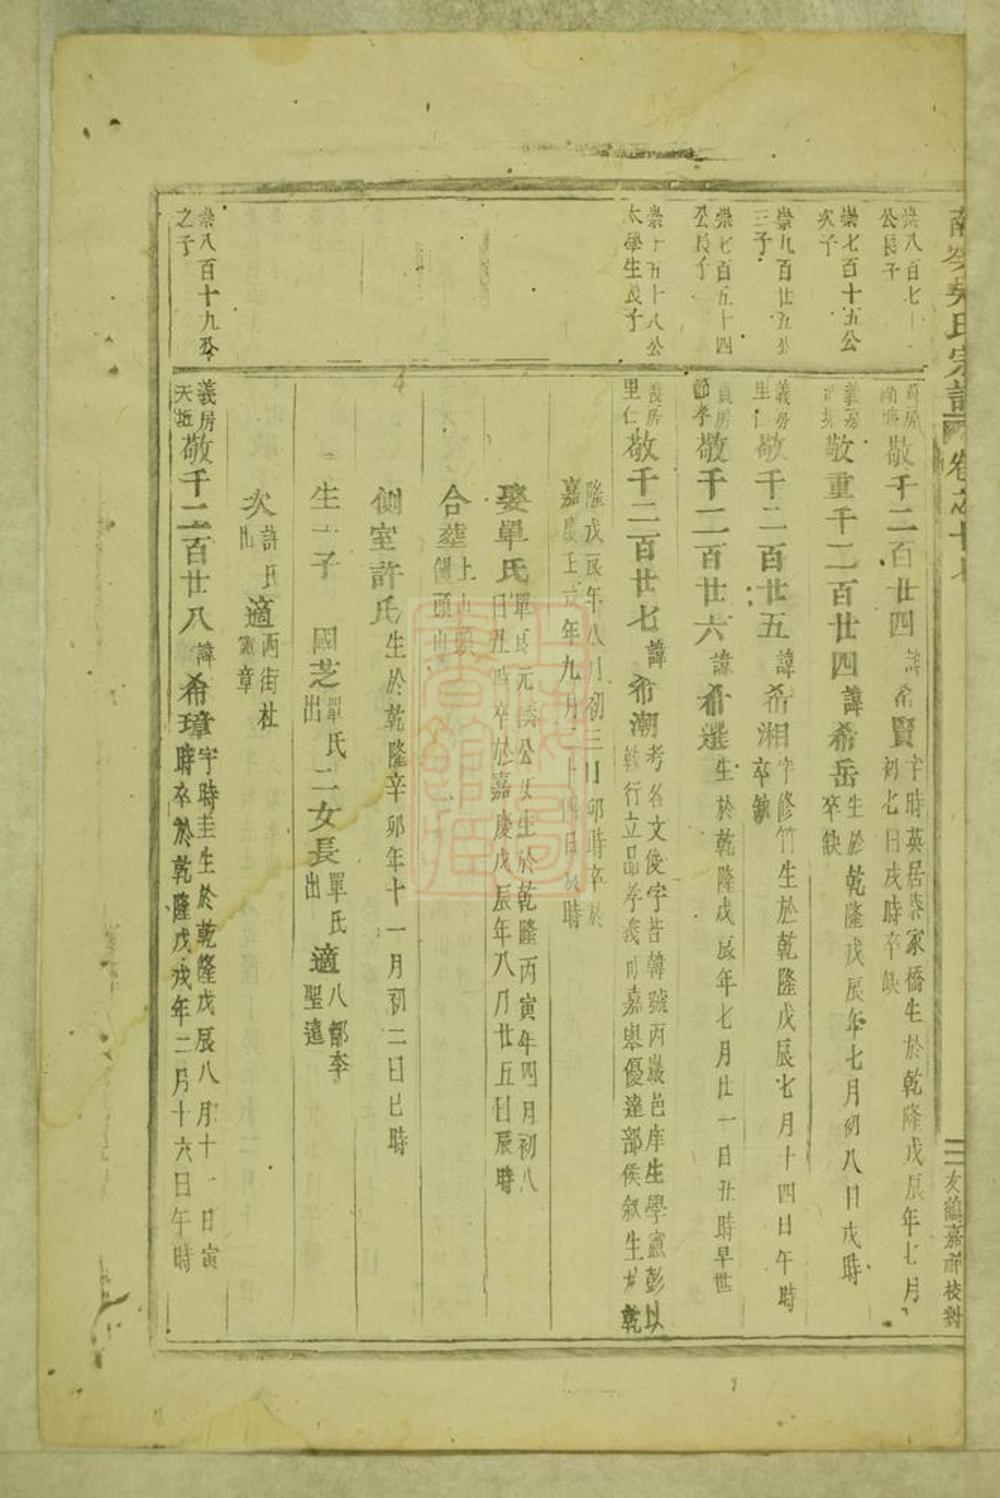 南岑吳氏宗譜 卷之十七
友鶴嘉祚校對
崇八百七十
公長子
房
敬千二百廿四 諱希賢
字時英居柒家橋生於乾隆戊辰年七月
初七日戌時卒缺
崇七百十五公
次子
義房
敬重千二百廿四 諱希岳
生於乾隆戊辰年七月初八日戌時
卒缺
崇九百廿五公
三子
義房
里仁
敬千二百廿五 諱希湘
字修竹生於乾隆戊辰七月十四日午時
卒缺
崇七百五十四
公長子
房
節孝
敬千二百廿六 諱希選
生於乾隆戊辰年七月廿一日丑時早世
崇十五十八公
太學生長子
義房
里仁
敬千二百廿七 諱希潮
考名文俊字若韓號丙巖邑庠生學憲彭以
敦行立品孝義可嘉舉優達部侯敘生於乾
隆戊辰年八月初三日卯時卒於
嘉慶上六年九月二十四日辰時
娶單氏
單良元公女生於乾隆丙寅年四月初八
日丑時卒於嘉慶戊辰年八月廿五日辰時
合葬
上山頭
饅頭山
側室許氏 生於乾隆辛卯年十一月初二日巳時
生一子 國芝 單氏出 二女長 單氏出 適 八都李聖遠
次 許氏出 適 兩街杜 章
崇八百十九公
之子
義房
天坵
敬千二百廿八 諱希璋
字時圭生於乾隆戊辰八月十一日寅
時卒於乾隆戊戌年二月十六日午時